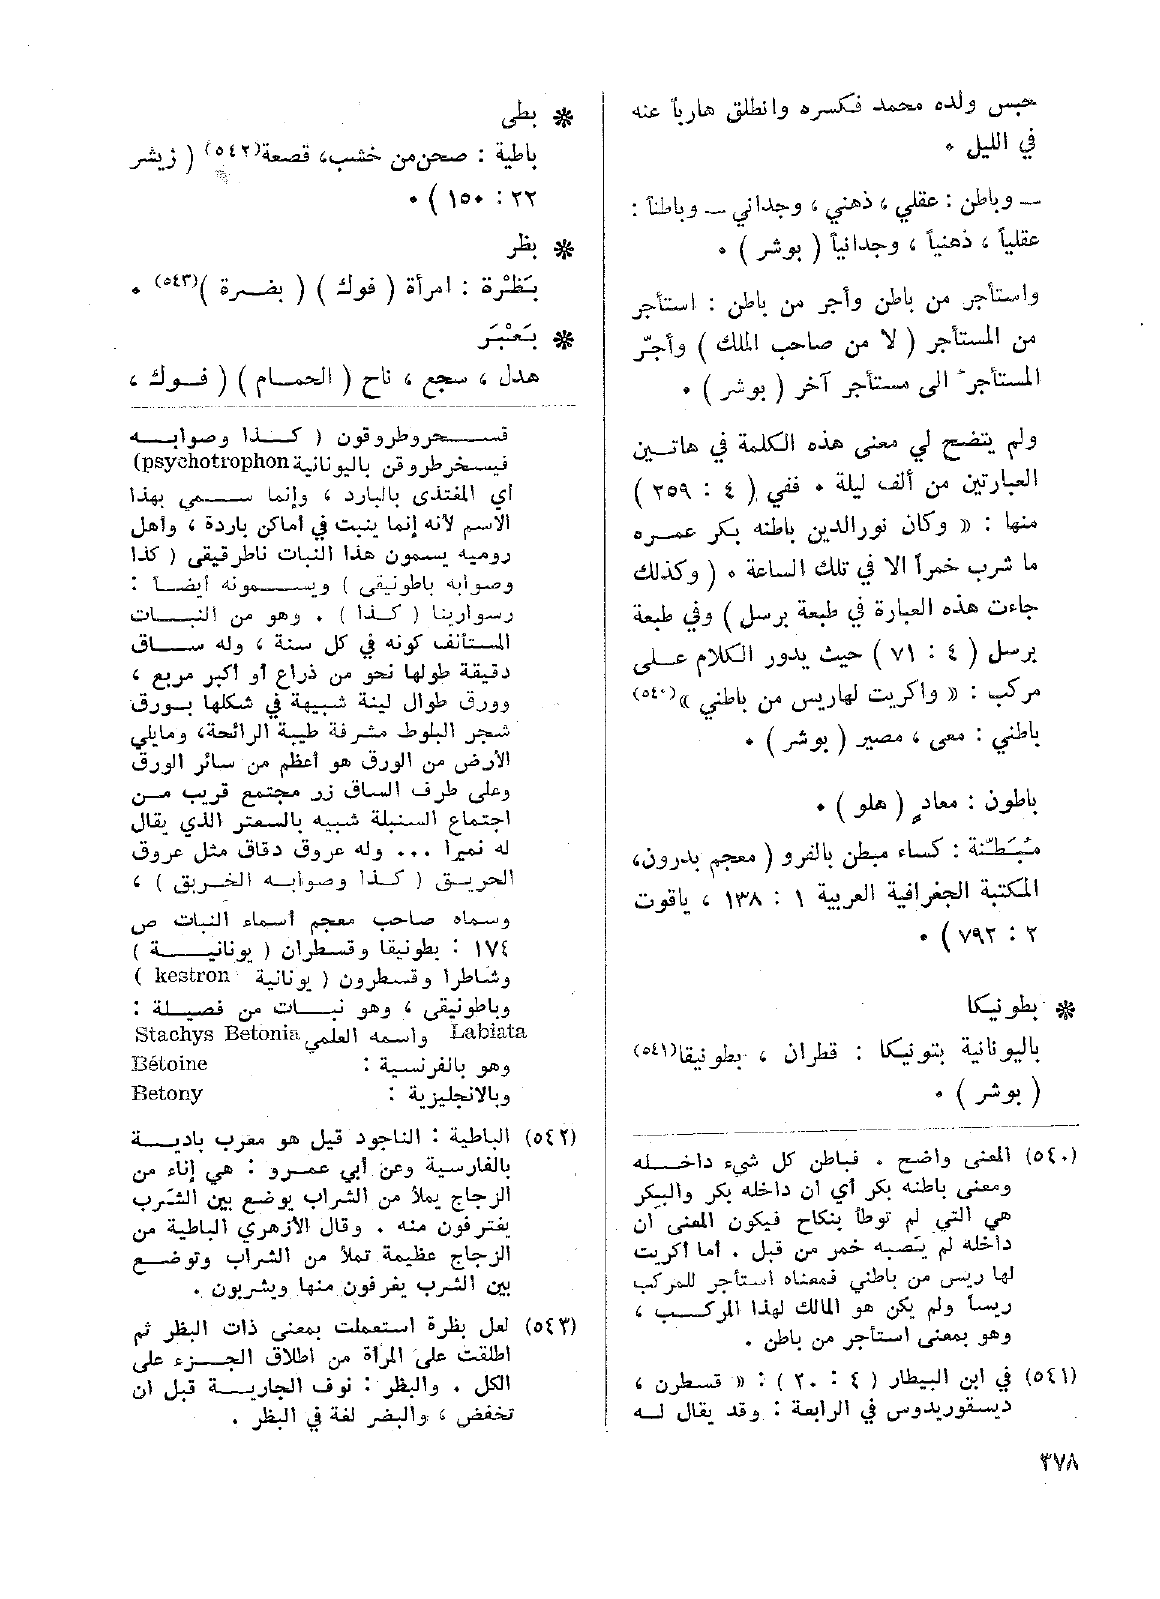 حبس ولده محمد فكسره وانطلق هارباً عنه
في الليل ٠
ــ وباطن : عقلي ، ذهني ، وجداني ــ وباطناً :
عقلياً ، ذهنياً ، وجدانياً ( بوشر ) ٠
واستأجر من باطن وأجر من باطن : استأجر
من المستأجر ( لا من صاحب الملك ) وأجّر
المستأجر الى مستأجر آخر ( بوشر ) ٠
ولم يتضح لي معنى هذه الكلمة في هاتين
العبارتين من ألف ليلة ٠ ففي ( ٤ : ٢٥٩ )
منها : « وكان نورالدين باطنه بكر عمره
ما شرب خمراً الا في تلك الساعة ٠ ( وكذلك
جاءت هذه العبارة في طبعة برسل ) وفي طبعة
برسل ( ٤ : ٧١ ) حيث يدور الكلام على
مركب : « واكريت لهاريس من باطني »(٥٤٠)
باطني : معى ، مصير ( بوشر ) ٠
باطون : معادٍ ( هلو ) ٠
مُبَطّنة : كساء مبطن بالفرو ( معجم بدرون،
المكتبة الجغرافية العربية ١ : ١٣٨ ، ياقوت
٢ : ٧٩٢ ) ٠
❋ بطونيكا
باليونانية بتونيكا : قطران ، بطونيقا(٥٤١)
( بوشر ) ٠
(٥٤٠) المعنى واضح . فباطن كل شيء داخله
ومعنى باطنه بكر أي ان داخله بكر والبكر
هي التي لم توطأ بنكاح فيكون المعنى ان
داخله لم يَصبه خمر من قبل . أما اكريت
لها ريس من باطني فمعناه استأجر للمركب
ريساً ولم يكن هو المالك لهذا المركب ،
وهو بمعنى استأجر من باطن .
(٥٤١) في ابن البيطار ( ٤ : ٢٠ ) : « قسطرن ،
ديسقوريدوس في الرابعة : وقد يقال له
❋ بطى
باطية : صحن من خشب، قصعة(٥٤٢) ( زيشر
٢٢ : ١٥٠ ) ٠
❋ بظر
بَظْرة : امرأة ( فوك ) ( بضرة )(٥٤٣) ٠
❋ بَعْبَر
هدل ، سجع ، ناح ( الحمام ) ( فوك ،
قسخروطروقون ( كذا وصوابه
فيسخرطروفن باليونانية psychotrophon)
أي المغتذى بالبارد ، وإنما سمي بهذا
الاسم لأنه إنما ينبت في أماكن باردة ، وأهل
روميه يسمون هذا النبات ناطرقيقى ( كذا
وصوابه باطونيقى ) ويسمونه أيضاً :
رسوارينا ( كذا ) . وهو من النبات
المستأنف كونه في كل سنة ، وله ساق
دقيقة طولها نحو من ذراع أو أكبر مربع ،
وورق طوال لينة شبيهة في شكلها بورق
شجر البلوط مشرفة طيبة الرائحة، ومايلي
الأرض من الورق هو أعظم من سائر الورق
وعلى طرف الساق زر مجتمع قريب من
اجتماع السنبلة شبيه بالسعتر الذي يقال
له نميرا ... وله عروق دقاق مثل عروق
الحريق ( كذا وصوابه الخريق ) ،
وسماه صاحب معجم أسماء النبات ص
١٧٤ : بطونيقا وقسطران ( يونانية )
وشاطرا وقسطرون ( يونانية kestron )
وباطونيقى ، وهو نبات من فصيلة :
Labiata واسمه العلمي Stachys Betonia
وهو بالفرنسية : Bétoine
وبالانجليزية : Betony
(٥٤٢) الباطية : الناجود قيل هو معرب بادية
بالفارسية وعن أبي عمرو : هي إناء من
الزجاج يملأ من الشراب يوضع بين الشَرب
يغترفون منه . وقال الأزهري الباطية من
الزجاج عظيمة تملأ من الشراب وتوضع
بين الشرب يغرفون منها ويشربون .
(٥٤٣) لعل بظرة استعملت بمعنى ذات البظر ثم
اطلقت على المرأة من اطلاق الجزء على
الكل . والبظر : نوف الجارية قبل ان
تخفض ، والبضر لغة في البظر .
٣٧٨